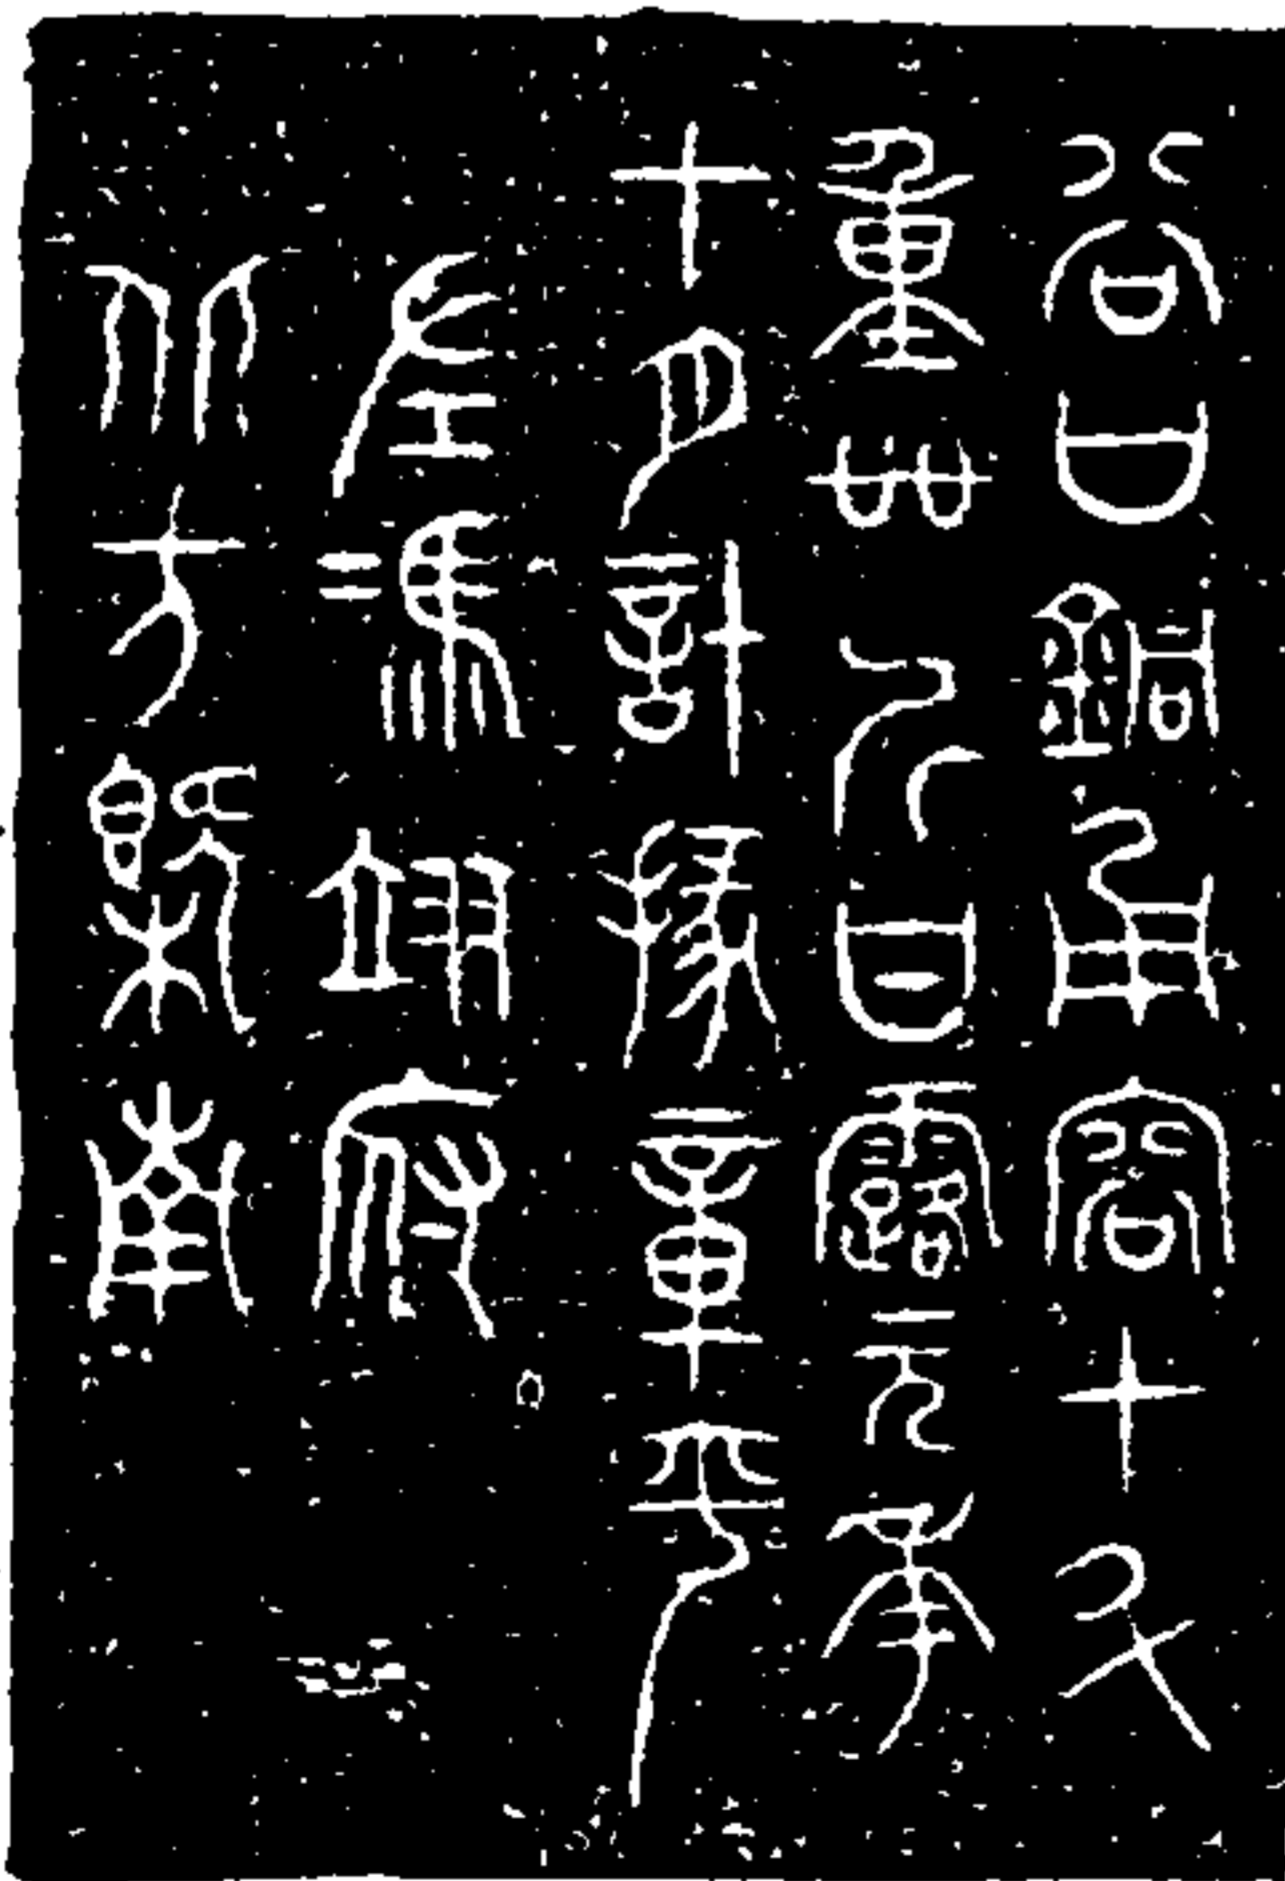 谷口銅甬容十斗
重卌斤甘露元年
十月計掾章平
左馮翊府